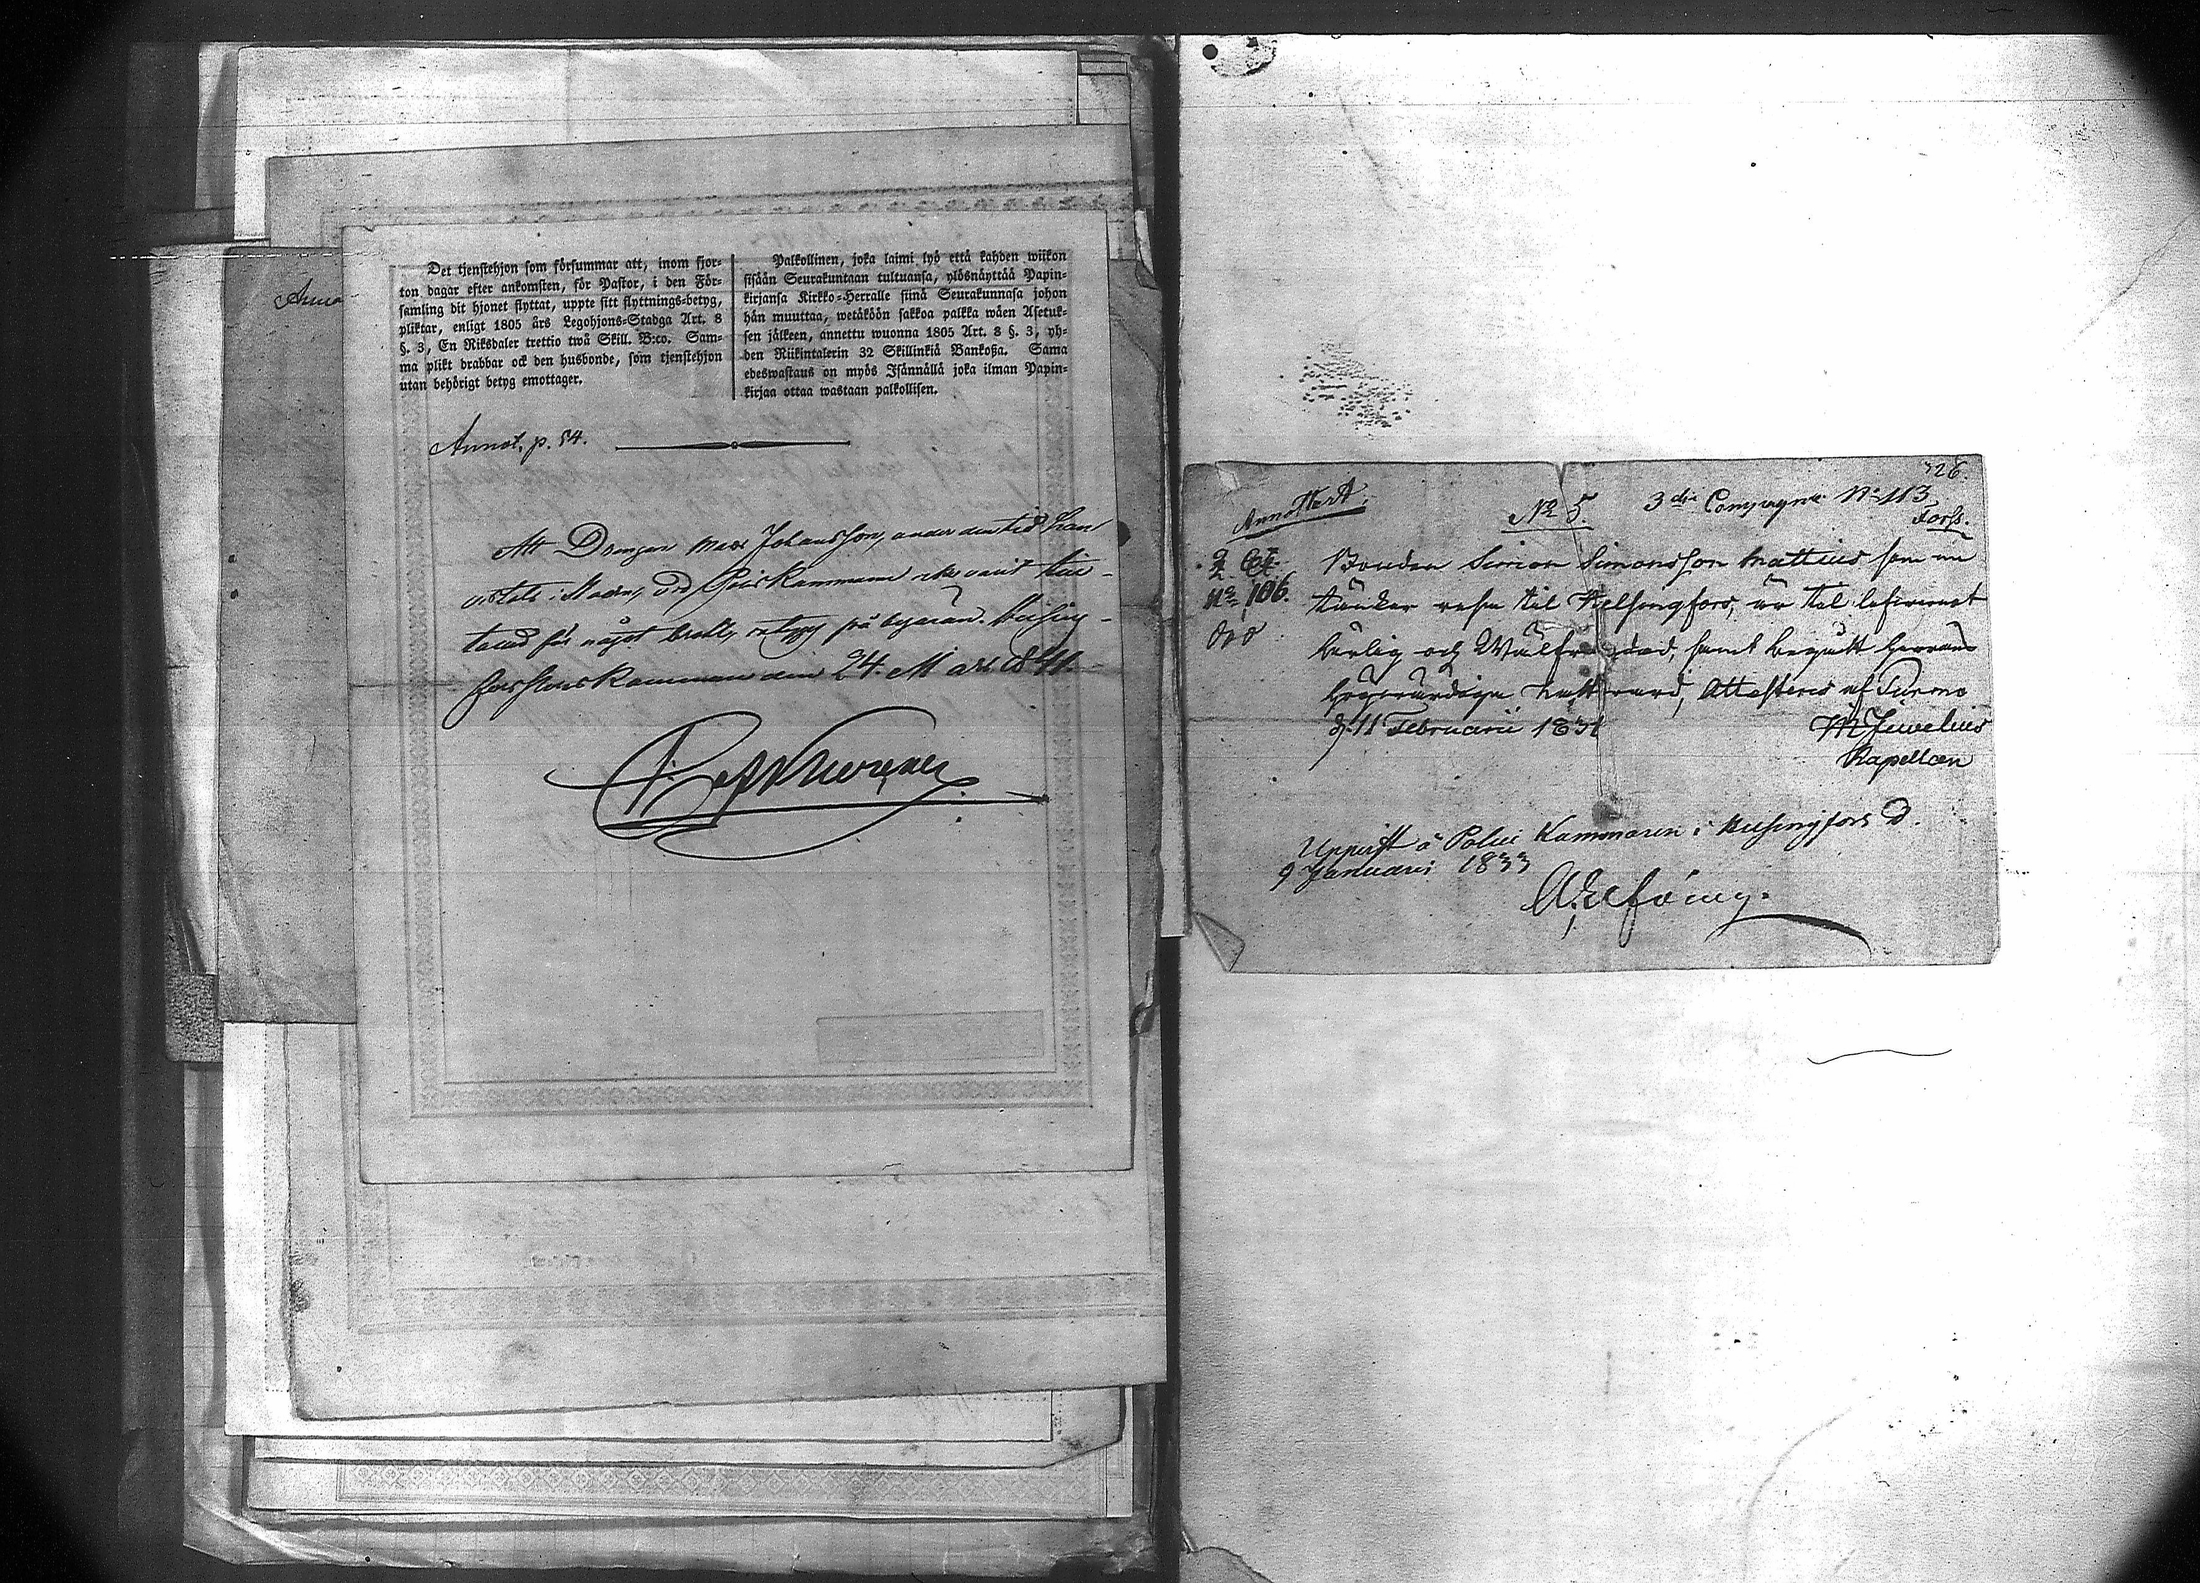 Det tjenstehjon som försummar att, inom fjor-
ton dagar efter ankomsten, för Pastor, i den För-
samling dit hjonet flyttat, uppte sitt flyttnings-betyg,
pliktar, enligt 1805 års Legohjons-Stadga Art. 8
§. 3, En Riksdaler trettio twå Skill. B:co. Sam-
ma plikt drabbar ock den husbonde, som tjenstehjon
utan behörigt betyg emottager.
Palkollinen, joka laimi lyö että kahden wiikon
sisään Seurakuntaan tultuansa, ylösnäyttää Papin-
kirjansa Kirkko-Herralle siinä Seurakunnasa johon
hän muuttaa, wetäköön sakkoa palkka wäen Asetuk-
sen jälkeen, annettu wuonna 1805 Art. 8 §. 3, yh-
den Riikintalerin 32 Skillinkiä Bankoßa. Sama
edeswastaus on myös Isännällä joka ilman Papin-
kirjaa ottaa wastaan palkollisen.
Annot. p. 54.
Att Drengen Johansson, under den tid han
vistats i Staden, vid Poliskammaren icke varit till-
talad för något brott, på begäran. Helsing-
fors Poliskammare den 24. Mars 1841.
Annoterat.
No 5. 3dje Compagnie No 113
Forss.
No 106.
Bonden Simon Simonsson Mattius som nu
tänker resa til Helsingfors, är til lefvernet
ärlig och Wälfräjdad, samt begått Herrans
Högvürdiga Nattvard, Attesteras af Purmo
d. 11 Februarii 1831
M Juvelius
Kapellan
Uppvist å Polis Kammaren i Helsingfors d.
9 Januari 1833